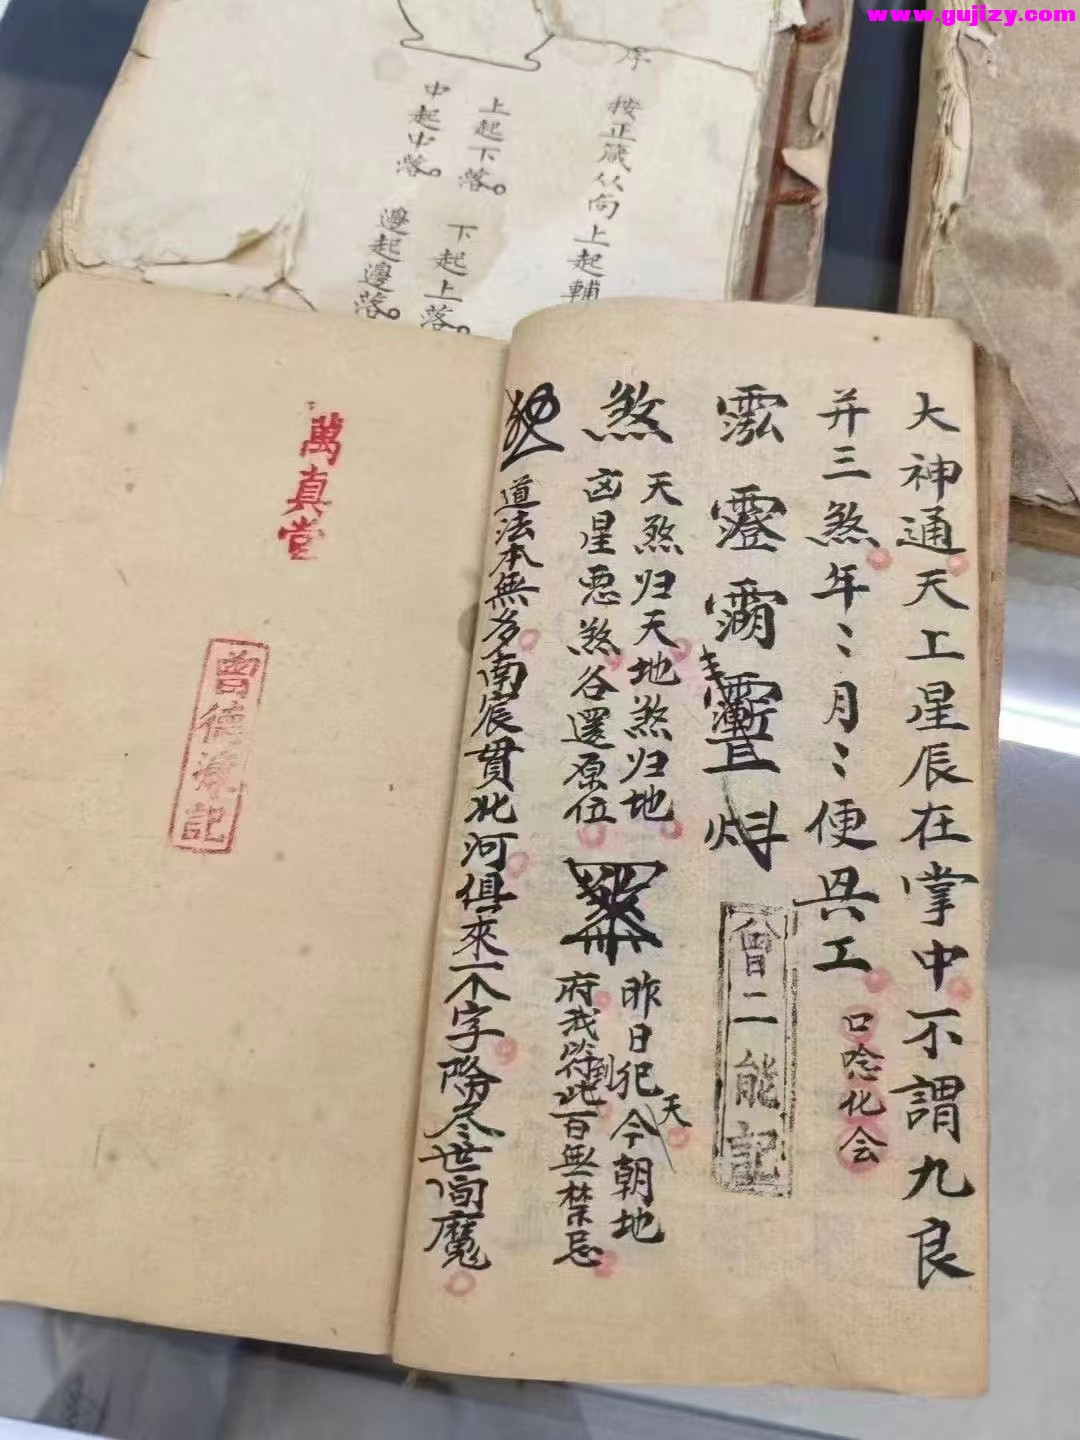 www.gujizy.com
序
按正箴从向上起輔
上起下落。
下起上落。
中起中落。
邊起邊落。
大神通天上星辰在掌中不謂九良
并三煞年〻月〻便興工
口唸化会
曾二能記
煞
天煞归天地煞归地
凶星惡煞各還原位
昨日犯今朝地
天
府我符到此百無禁忌
道法本無多南宸貫北河俱來一个字降尽世间魔
萬真堂
曾德記